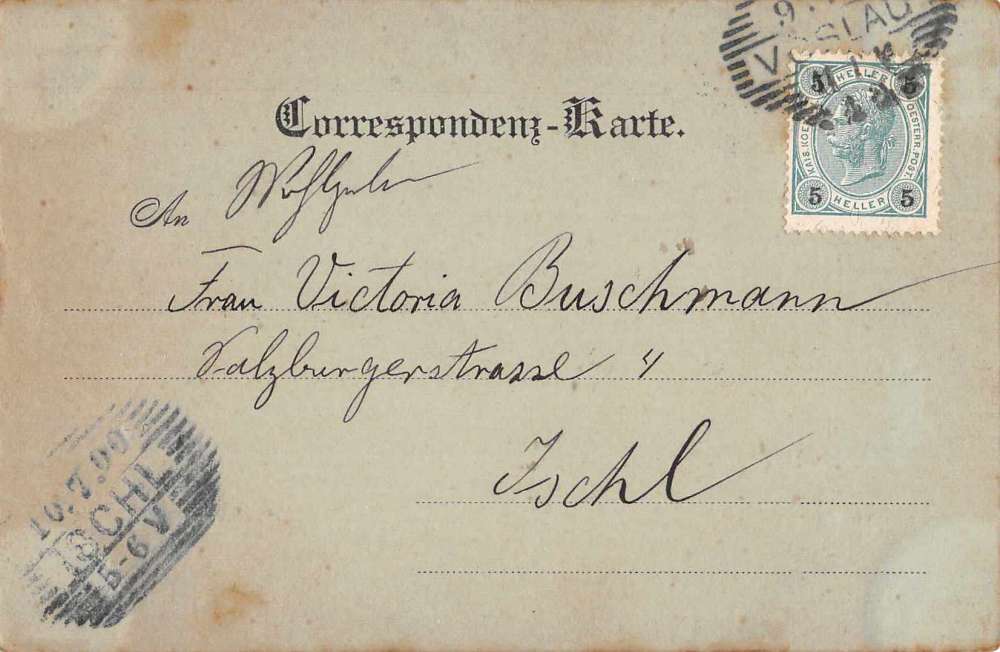 9.
VÖSLAU
5 HELLER 5
KAIS. KOE
OESTERR. POST.
5 HELLER 5
Correspondenz-Karte.
An
Frau Victoria Buschmann
Salzburgerstrasse 4
Ischl
10.7.00
ISCHL
5-6 V